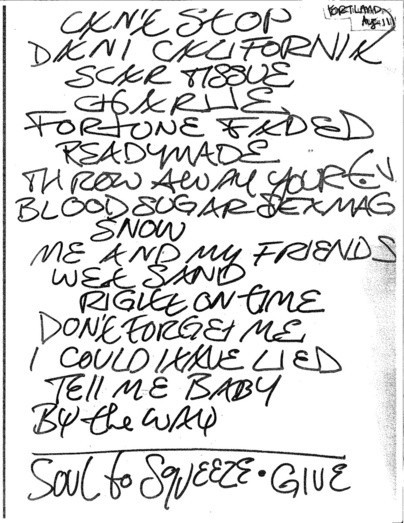 PORTLAND
Aug 11
CAN'T STOP
DANI CALIFORNIA
SCAR TISSUE
CHARLIE
FORTUNE FADED
READYMADE
THROW AWAY YOUR TV
BLOOD SUGAR SEX MAG
SNOW
ME AND MY FRIENDS
WET SAND
RIGHT ON TIME
DON'T FORGET ME
I COULD HAVE LIED
TELL ME BABY
BY the WAY
SOUL to SQUEEZE • GIVE